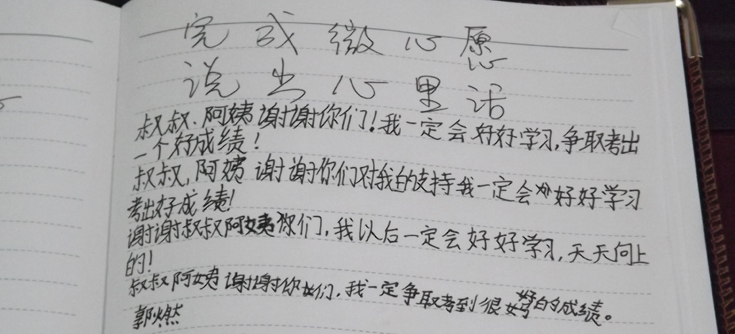 完成微心愿
说出心里话
叔叔、阿姨谢谢你们!我一定会好好学习,争取考出
一个好成绩!
叔叔,阿姨谢谢你们对我的支持我一定会好好学习
考出好成绩!
谢谢叔叔阿姨你们,我以后一定会好好学习,天天向上
的!
叔叔阿姨谢谢你们,我一定争取考到很好的成绩。
郭燃